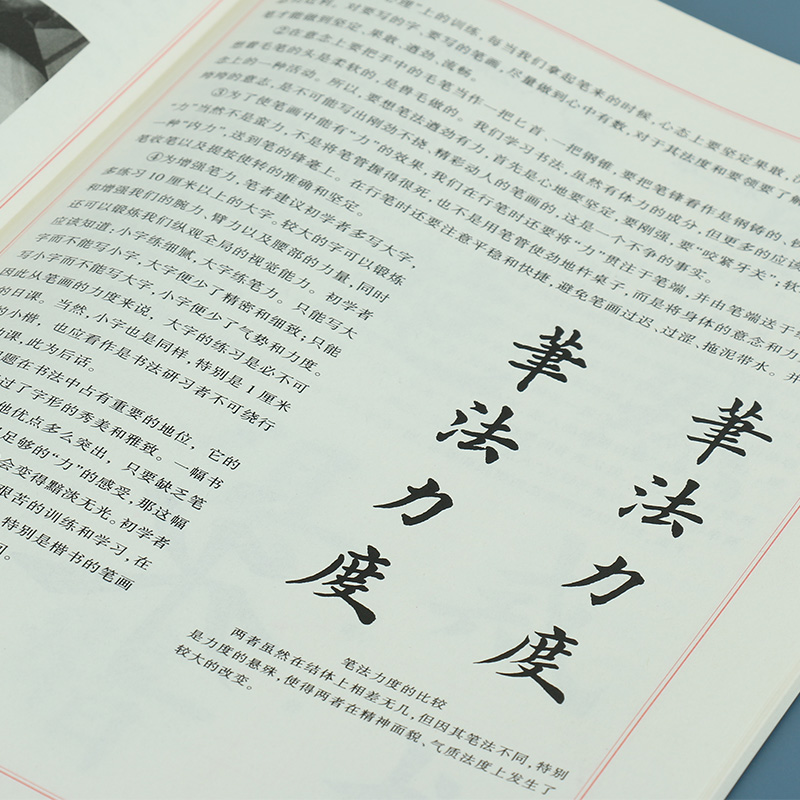 理”上的训练，每当我们拿起笔来的时候，心态上要坚定果敢，
对要写的字、要写的笔画，尽量做到心中有数，对于其法度和要领要了解
笔才能做到坚定、果敢、遒劲、流畅。
②在意念上要把手中的毛笔当作一把匕首、一把钢锥，要把笔锋看作是钢铸的、铁
想着毛笔的头是柔软的，是兽毛做的。我们学习书法，虽然有体力的成分，但更多的应该
念上的一种活动。所以，要想笔法遒劲有力，首先是心地要坚定，要刚强，要“咬紧牙关”；软
的意志，是不可能写出刚劲不挠、精彩动人的笔画的，这是一个不争的事实。
③为了使笔画中能有“力”的效果，我们在行笔时还要将“力”贯注于笔端，并由笔端送于
“力”当然不是蛮力，不是将笔管握得很死，也不是用笔管使劲地杵桌子，而是将身体的意念和力
一种“内力”，送到笔的锋毫上。在行笔时还要注意平稳和快捷，避免笔画过迟、过涩、拖泥带水。并
笔收笔以及提按使转的准确和坚定。
④为增强笔力，笔者建议初学者多写大字，
多练习10厘米以上的大字。较大的字可以锻炼
和增强我们的腕力、臂力以及腰部的力量，同时
还可以锻炼我们纵观全局的视觉能力。初学者
应该知道：小字练细腻，大字练笔力。只能写大
字而不能写小字，大字便少了精密和细致；只能
写小字而不能写大字，小字便少了气势和力度。
因此从笔画的力度来说，大字的练习是必不可
的日课。当然，小字也是同样，特别是1厘米
的小楷，也应看作是书法研习者不可绕行
功课，此为后话。
题在书法中占有重要的地位，它的
过了字形的秀美和雅致。一幅书
他优点多么突出，只要缺乏笔
足够的“力”的感受，那这幅
会变得黯淡无光。初学者
艰苦的训练和学习，在
特别是楷书的笔画
筆法力度
筆法力度
笔法力度的比较
两者虽然在结体上相差无几，但因其笔法不同，特别
是力度的悬殊，使得两者在精神面貌、气质法度上发生了
较大的改变。